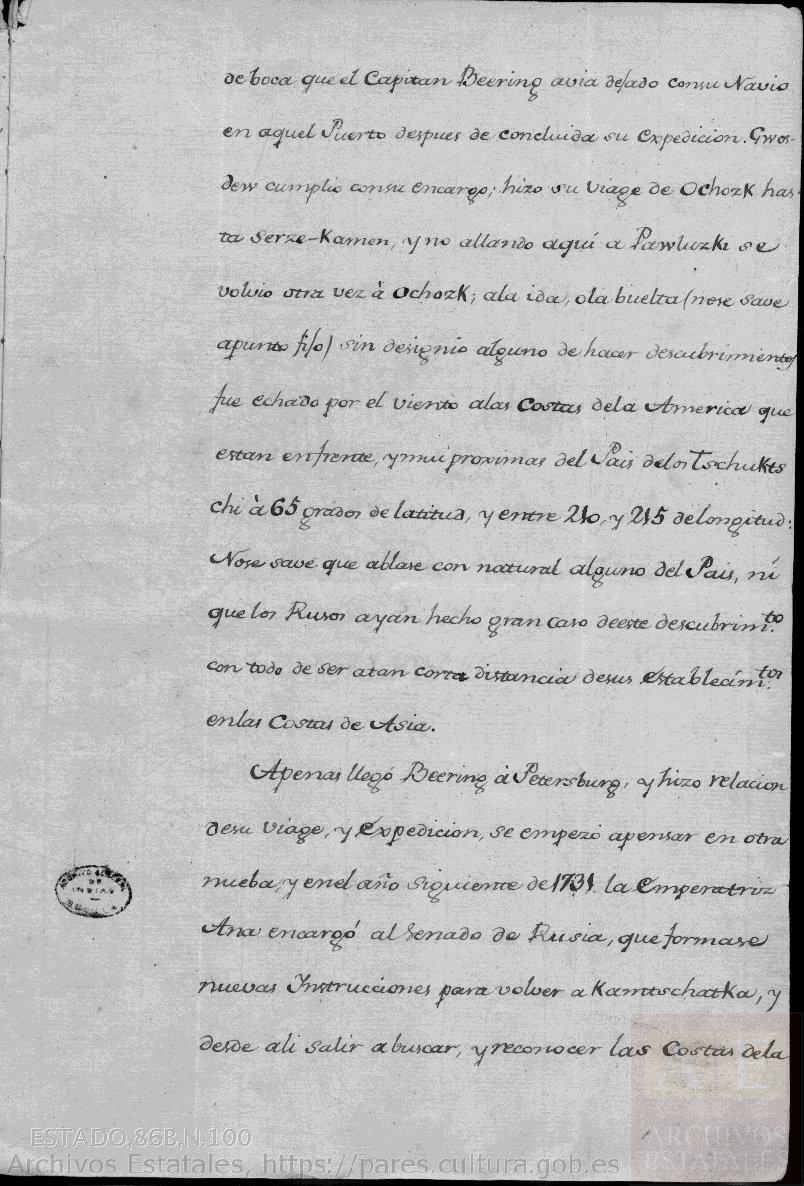 de boca que el Capitan Beering avia dejado consu Navio
en aquel Puerto despues de concluida su Expedicion. Gwos-
dew cumplio consu encargo; hizo su viage de Ochozk has-
ta Serze-Kamen, y no allando aquí a Pawluzki se
volvio otra vez à Ochozk; ala ida, ola buelta (nose save
apunto fijo) sin designio alguno de hacer descubrimientos
fue echado por el viento alas Costas dela America que
estan enfrente, y mui proximas del Pais delos Tschukts
chi à 65 grados de latitud, y entre 210, y 215 delongitud:
Nose save que ablase con natural alguno del Pais, ni
que los Rusos ayan hecho gran caso deeste descubrim.to
con todo de ser atan corta distancia desus establecim.tos
enlas Costas de Asia.
Apenas llegó Beering à Petersburg, y hizo relacion
desu viage, y Expedicion, se empezó apensar en otra
nueba, y enel año siguiente de 1731. la Emperatriz
Ana encargó al Senado de Rusia, que formase
nuevas Instrucciones para volver a Kamtschatka, y
desde ali salir abuscar, y reconocer las Costas dela
ARCHIVO GENERAL
DE
INDIAS
SEVILLA
ESTADO,86B,N.100
Archivos Estatales, https://pares.cultura.gob.es
ARCHIVOS
ESTATALES